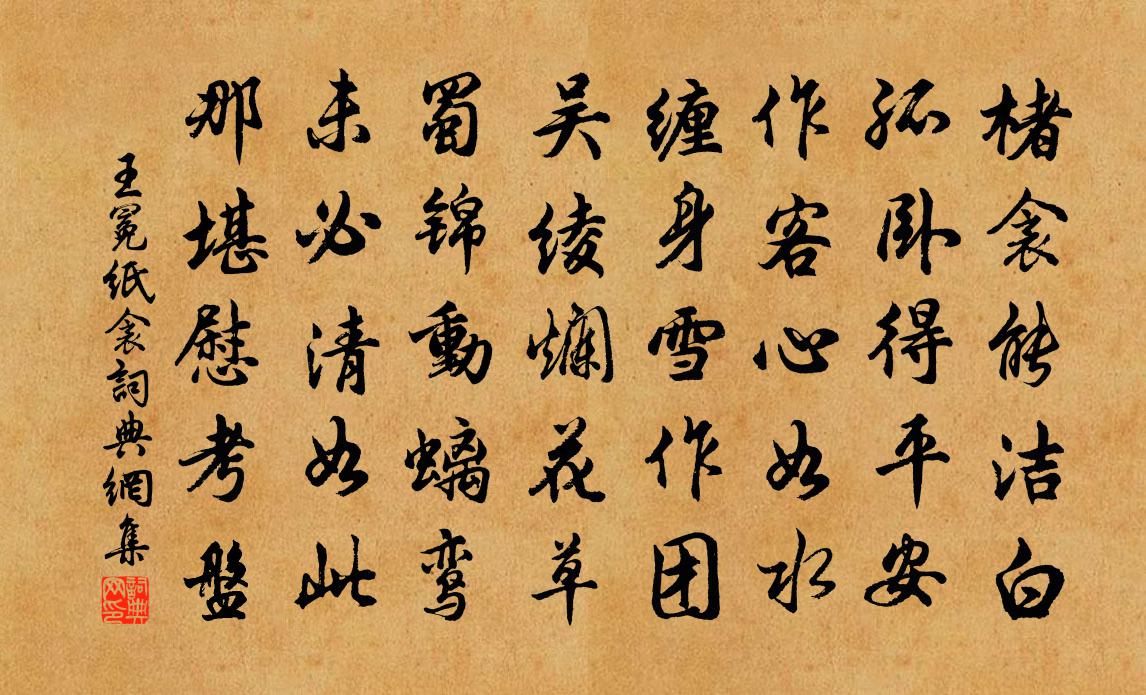 楮衾能洁白
孤卧得平安
作客心如水
缠身雪作团
吴绫爛花草
蜀锦動螭鸾
未必清如此
那堪慰考盤
王冕纸衾詞典網集
詞典网印